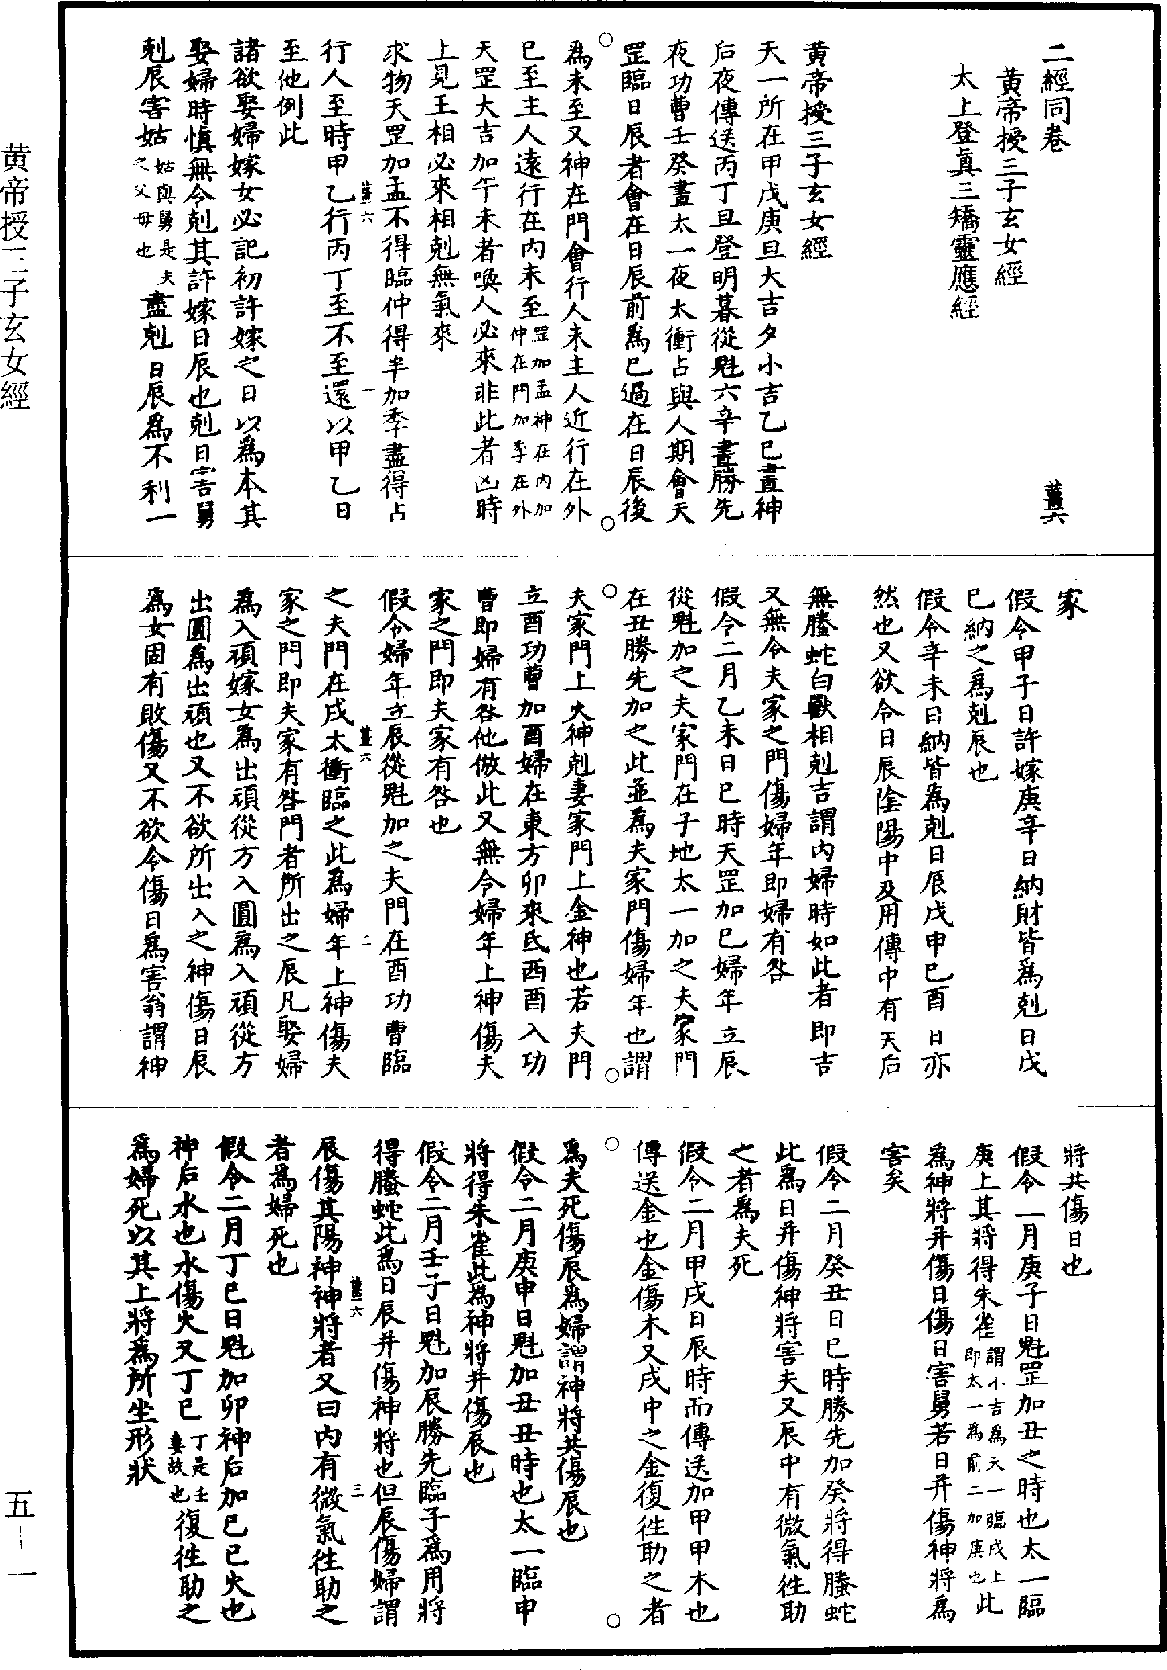 二經同卷 薑六
黃帝授三子玄女經
太上登真三矯靈應經
黃帝授三子玄女經
天一所在甲戊庚旦大吉夕小吉乙己晝神
后夜傳送丙丁旦登明暮從魁六辛晝勝先
夜功曹壬癸晝太一夜太衝占與人期會天
罡臨日辰者會在日辰前為已過在日辰後
為未至又神在門會行人未主人近行在外
已至主人遠行在內未至罡加孟神在內加仲在門加季在外
天罡大吉加午未者喚人必來非此者凶時
上見王相必來相剋無氣來
求物天罡加孟不得臨仲得半加季盡得占
行人至時甲乙行丙丁至不至還以甲乙日
至他例此
諸欲娶婦嫁女必記初許嫁之日以為本其
娶婦時慎無令剋其許嫁日辰也剋日害舅
剋辰害姑姑與舅是夫之父母也盡剋日辰為不利一
家
假令甲子日許嫁庚辛日納財皆為剋日戊
己納之為剋辰也
假令辛未日納皆為剋日辰戊申己酉日亦
然也又欲令日辰陰陽中及用傳中有天后
無螣蛇白獸相剋吉謂內婦時如此者即吉
又無令夫家之門傷婦年即婦有咎
假令二月乙未日巳時天罡加巳婦年立辰
從魁加之夫家門在子地太一加之夫家門
在丑勝先加之此並為夫家門傷婦年也謂
夫家門上火神剋妻家門上金神也若夫門
立酉功曹加酉婦在東方卯來氐西酉入功
曹即婦有咎他倣此又無令婦年上神傷夫
家之門即夫家有咎也
假令婦年立辰從魁加之夫門在酉功曹臨
之夫門在戌太衝臨之此為婦年上神傷夫
家之門即夫家有咎門者所出之辰凡娶婦
為入頑嫁女為出頑從方入圓為入頑從方
出圓為出頑也又不欲所出入之神傷日辰
為女固有敗傷又不欲令傷日為害翁謂神
將共傷日也
假令一月庚子日魁罡加丑之時也太一臨
庚上其將得朱雀謂小吉為天一臨戌上即太一為前二加庚也此
為神將并傷日傷日害舅若日并傷神將為
害矣
假令二月癸丑日巳時勝先加癸將得螣蛇
此為日并傷神將害夫又辰中有微氣往助
之者為夫死
假令二月甲戌日辰時而傳送加甲甲木也
傳送金也金傷木又戌中之金復往助之者
為夫死傷辰為婦謂神將共傷辰也
假令二月庚申日魁加丑丑時也太一臨申
將得朱雀此為神將并傷辰也
假令二月壬子日魁加辰勝先臨子為用將
得螣蛇此為日辰并傷神將也但辰傷婦謂
辰傷其陽神神將者又曰內有微氣往助之
者為婦死也
假令二月丁巳日魁加卯神后加巳巳火也
神后水也水傷火又丁巳丁是壬妻故也復往助之
為婦死以其上將為所坐形狀
黃帝授三子玄女經
五—一